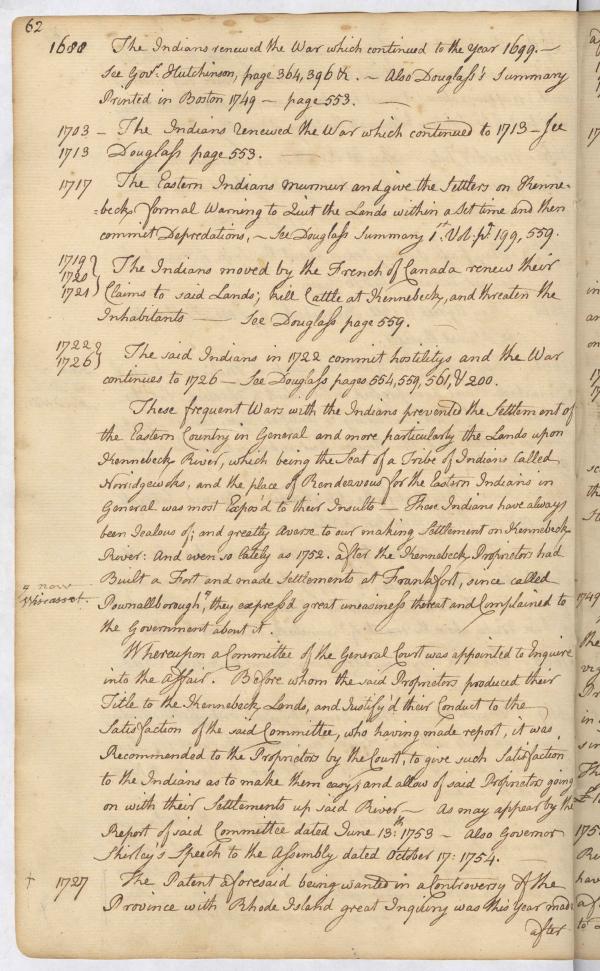 62
1688 The Indians renewed the War which continued to the Year 1699. —
See Govr. Hutchinson, page 364, 396 &. — Also Douglass's Summary
Printed in Boston 1749 — page 553. —
1703 — The Indians renewed the War which continued to 1713 — See
1713 Douglass page 553. —
1717 The Eastern Indians murmur and give the Settlers on Kenne-
=beck formal Warning to Quit the Lands within a set time and then
commit Depredations, — See Douglass Summary 1st. Vol: pa. 199, 559.
1719
1720 The Indians moved by the French of Canada renew their
1721 Claims to said Lands; kill Cattle at Kennebeck, and threaten the
Inhabitants — See Douglass page 559. —
1722
1726 The said Indians in 1722 commit hostilitys and the War
continues to 1726 — See Douglass pages 554, 559, 561, & 200.
These frequent Wars with the Indians prevented the Settlement of
the Eastern Country in General and more particularly the Lands upon
Kennebeck River, which being the Seat of a Tribe of Indians called
Norridgewoks, and the place of Rendeavous for the Eastern Indians in
General was most Expos'd to their Insults — These Indians have always
been Jealous of; and greatly Averse to our making Settlement on Kennebeck
River: And even so lately as 1752. after the Kennebeck Proprietors had
Built a Fort and made Settlements at Frankfort, since called
now
Wiscasset.
Pownallborough, they express'd great uneasiness thereat and Complained to
the Government about it.
Whereupon a Committee of the General Court was appointed to Enquire
into the Affair. Before whom the said Proprietors produced their
Title to the Kennebeck Lands, and Justify'd their Conduct to the
Satisfaction of the said Committee, who having made report, it was
Recommended to the Proprietors by the Court, to give such Satisfaction
to the Indians as to make them easy; and allow of said Proprietors going
on with their Settlements up said River — As may appear by the
Report of said Committee dated June 13th: 1753 — Also Governor
Shirley's Speech to the Assembly dated October 17: 1754. —
+ 1727 The Patent aforesaid being wanted in a Controversy of the
Province with Rhode Island great Inquiry was this Year made
after